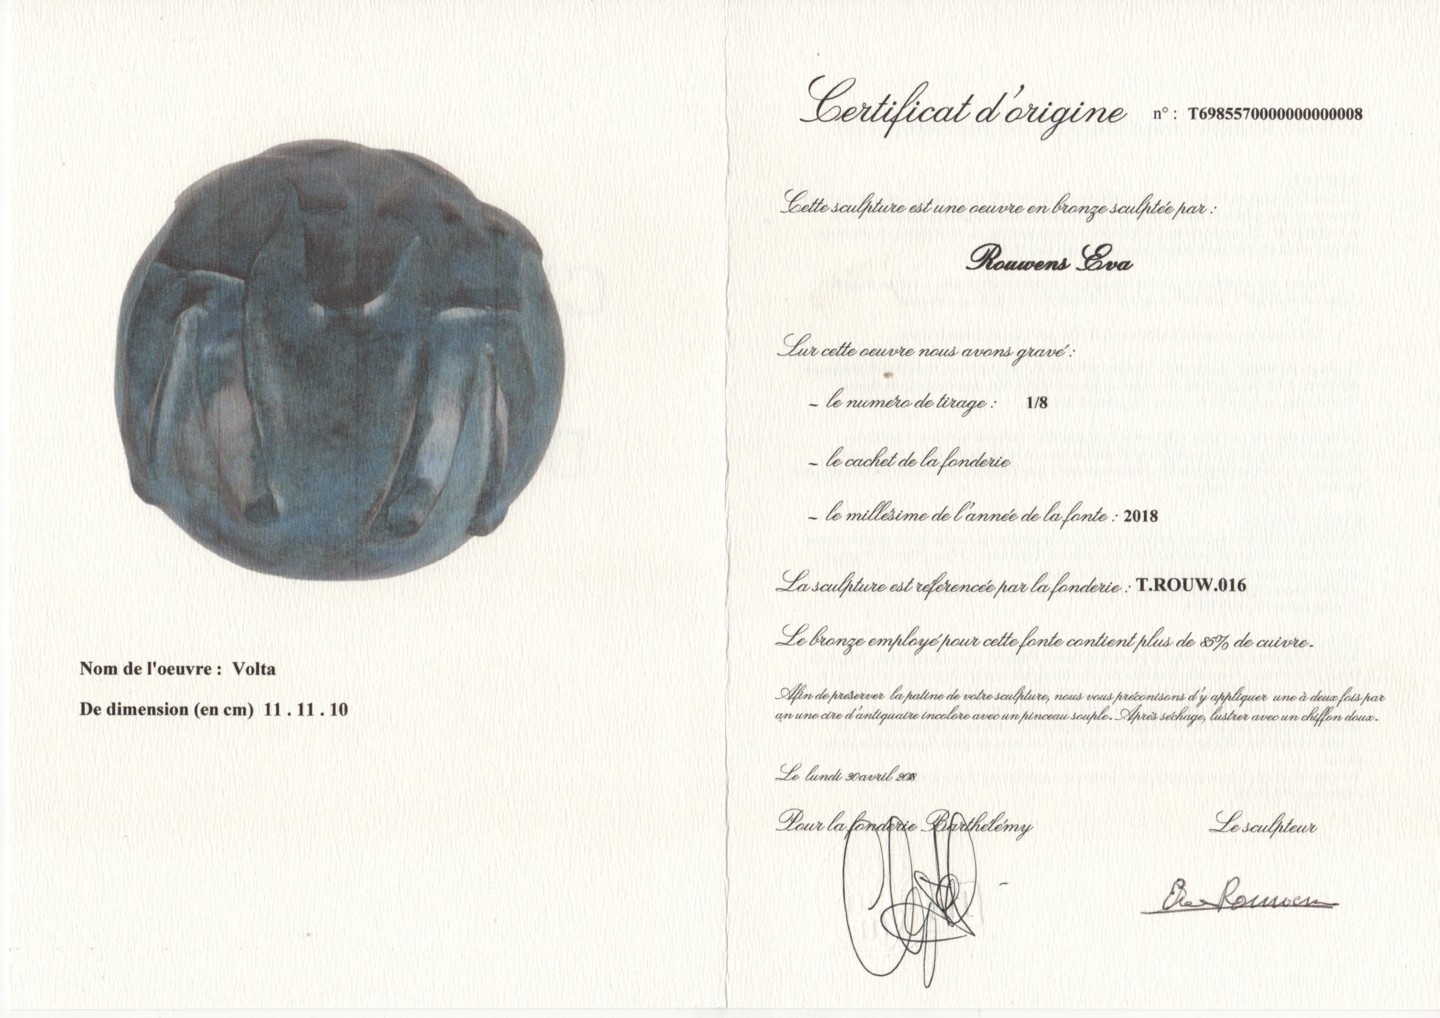 Nom de l'oeuvre : Volta
De dimension (en cm) 11 . 11 . 10
Certificat d'origine n° : T6985570000000000008
Cette sculpture est une oeuvre en bronze sculptée par :
Rouwens Eva
Sur cette oeuvre nous avons gravé :
- le numéro de tirage : 1/8
- le cachet de la fonderie
- le millésime de l'année de la fonte : 2018
La sculpture est référencée par la fonderie : T.ROUW.016
Le bronze employé pour cette fonte contient plus de 85% de cuivre.
Afin de préserver la patine de votre sculpture, nous vous préconisons d'y appliquer une à deux fois par
an une cire d'antiquaire incolore avec un pinceau souple. Après séchage, lustrer avec un chiffon doux.
Le lundi 30 avril 2018
Pour la fonderie Barthélémy Le sculpteur
Eva Rouwens